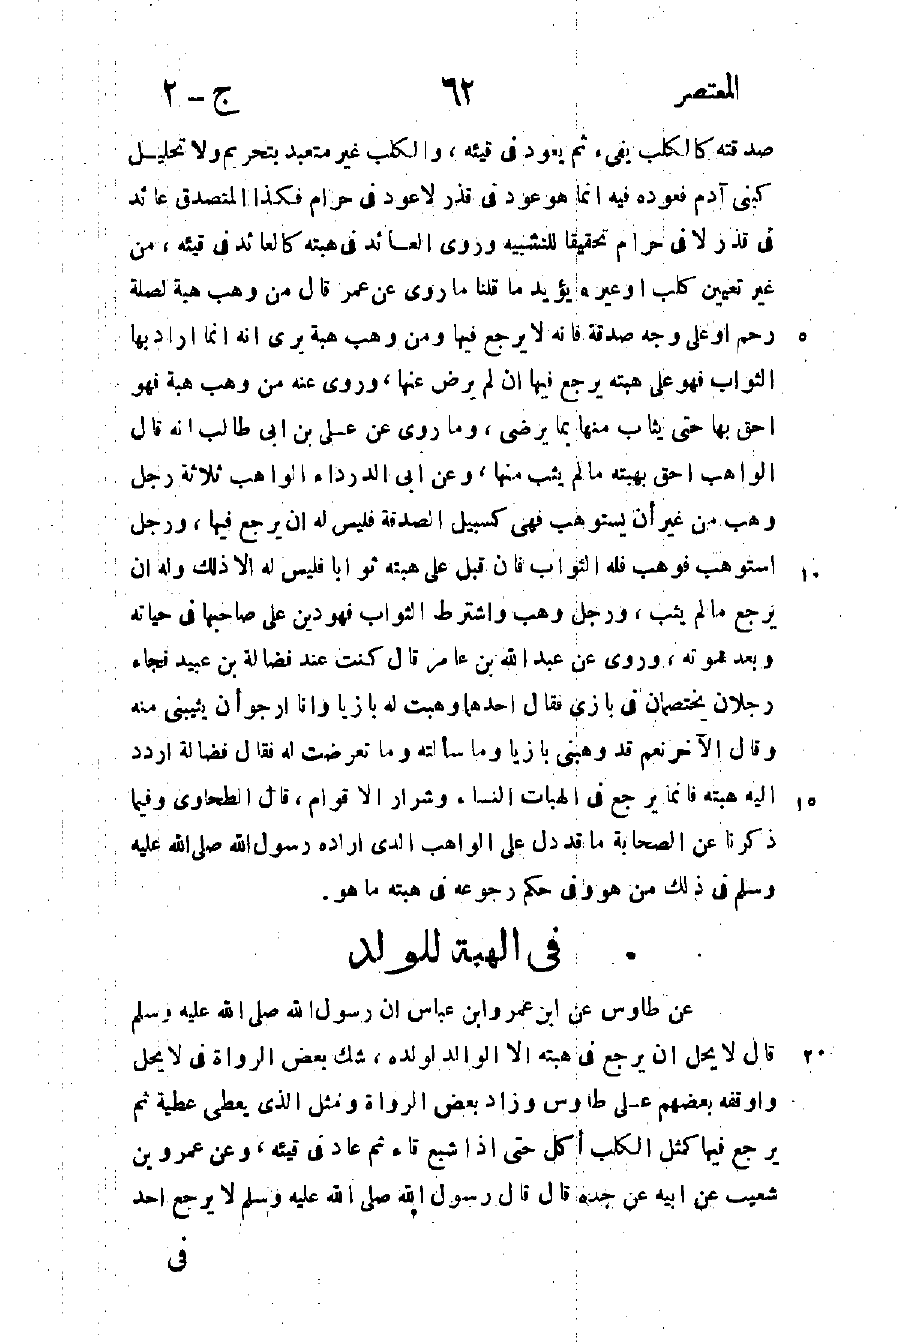 المعتصر ٦٢ ج - ٢
صدقته كالكلب يقىء ثم يعود فى قيئه ، والكلب غير متعبد بتحريم ولا تحليل
كبنى آدم فعوده فيه انما هو عود فى قذر لا عود فى حرام فكذا المتصدق عائد
فى قذر لا فى حرام تحقيقا للتشبيه وروى العائد فى هبته كالعائد فى قيئه ، من
غير تعيين كلب اوغيره يؤيد ما قلنا ما روى عن عمر قال من وهب هبة لصلة
رحم اوعلى وجه صدقة فانه لا يرجع فيها ومن وهب هبة يرى انه انما اراد بها ٥
الثواب فهو على هبته يرجع فيها ان لم يرض عنها ، وروى عنه من وهب هبة فهو
احق بها حتى يثاب منها بما يرضى ، وما روى عن على بن ابى طالب انه قال
الواهب احق بهبته مالم يثب منها ، وعن ابى الدرداء الواهب ثلاثة رجل
وهب من غير أن يستوهب فهى كسبيل الصدقة فليس له ان يرجع فيها ، ورجل
استوهب فوهب فله الثواب فان قبل على هبته ثوابا فليس له الا ذلك وله ان ١٠
يرجع مالم يثب ، ورجل وهب واشترط الثواب فهو دين على صاحبها فى حياته
وبعد موته ، وروى عن عبد الله بن عامر قال كنت عند فضالة بن عبيد فجاء
رجلان يختصمان فى بازى فقال احدهما وهبت له بازيا وانا ارجو أن يثيبنى منه
وقال الآخر نعم قد وهبنى بازيا وما سألته وما تعرضت له فقال فضالة اردد
اليه هبته فانما يرجع فى الهبات النساء وشرار الاقوام ، قال الطحاوى وفيما ١٥
ذكرنا عن الصحابة ما قد دل على الواهب الذى اراده رسول الله صلى الله عليه
وسلم فى ذلك من هو وفى حكم رجوعه فى هبته ما هو .
فى الهبة للولد
عن طاوس عن ابن عمر وابن عباس ان رسول الله صلى الله عليه وسلم
قال لا يحل ان يرجع فى هبته الا الوالد لولده ، شك بعض الرواة فى لا يحل ٢٠
واوقفه بعضهم على طاوس وزاد بعض الرواة ومثل الذى يعطى عطية ثم
يرجع فيها كمثل الكلب أكل حتى اذا شبع قاء ثم عاد فى قيئه ، وعن عمرو بن
شعيب عن ابيه عن جده قال قال رسول الله صلى الله عليه وسلم لا يرجع احد
فى